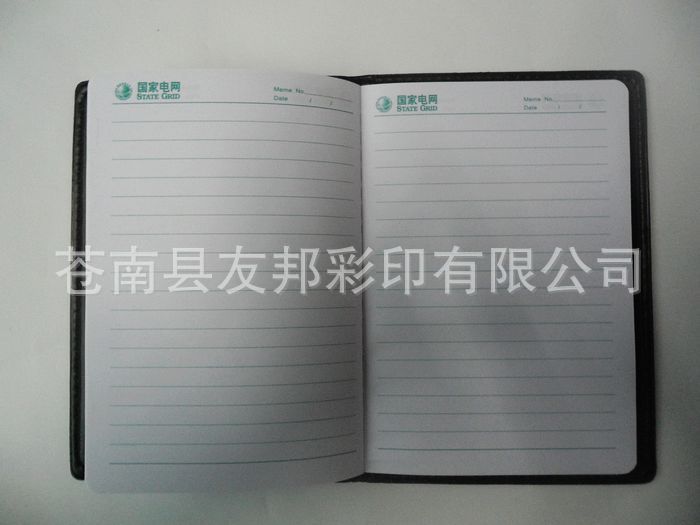 国家电网
STATE GRID
Meme No.
Date / /
国家电网
STATE GRID
Meme No.
Date / /
苍南县友邦彩印有限公司